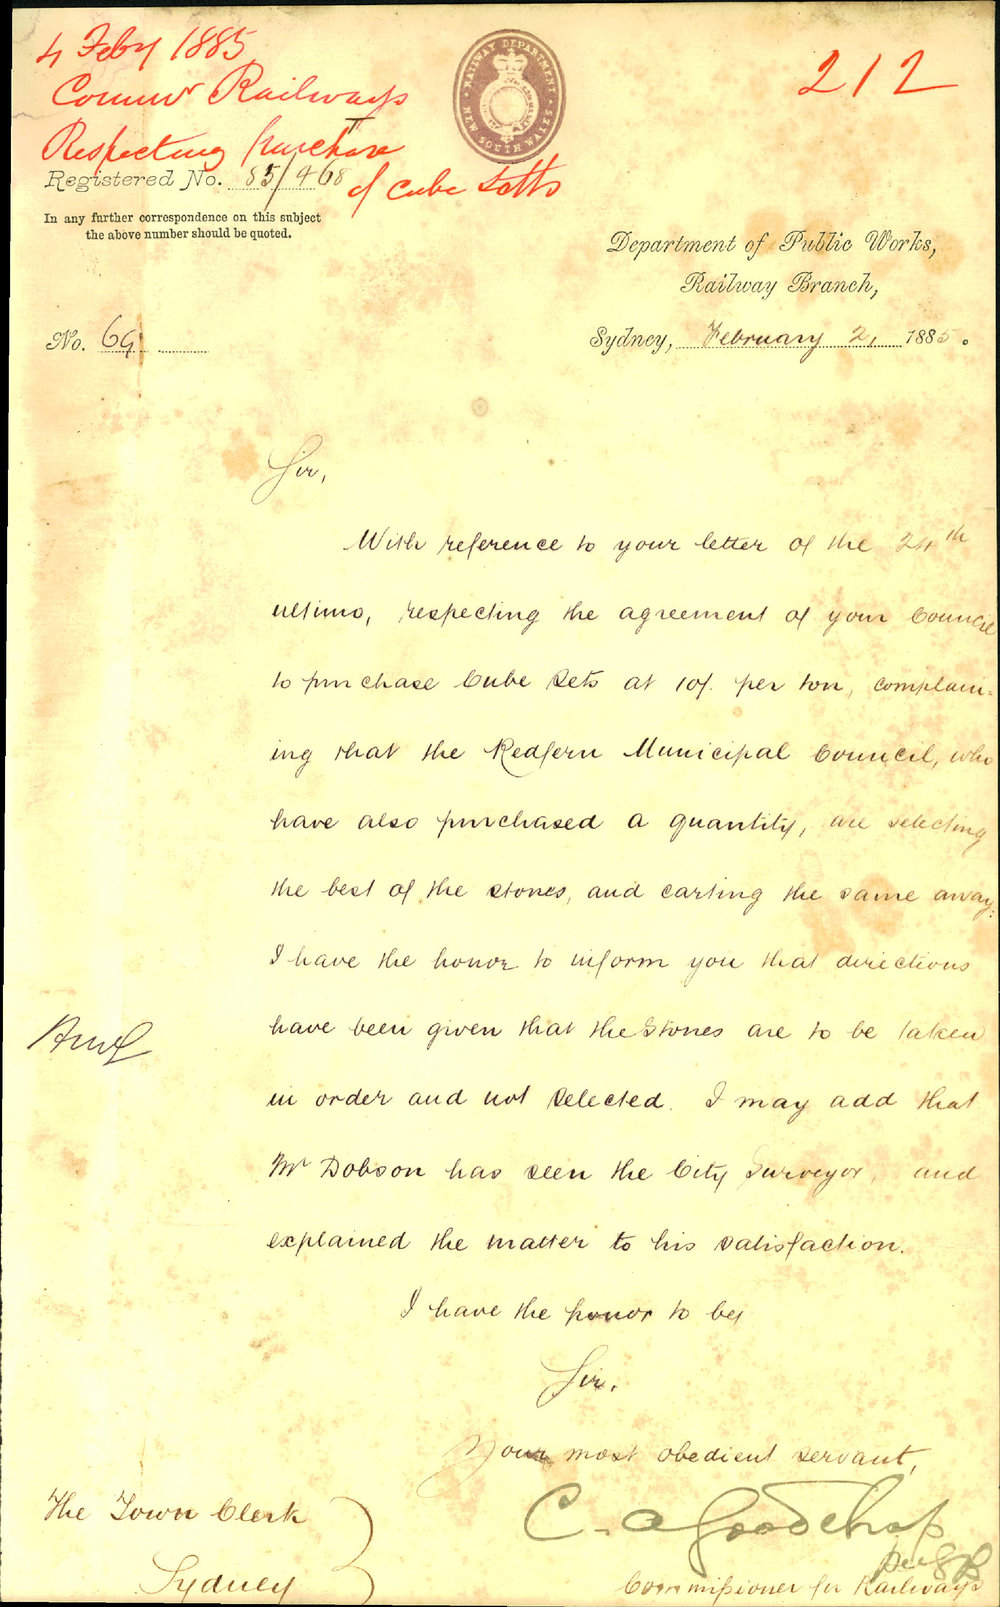 4 Feby 1885
Commr Railways
Respecting purchase
of Cube Setts
212
RAILWAY DEPARTMENT
NEW SOUTH WALES
Registered No. 85/468
In any further correspondence on this subject
the above number should be quoted.
Department of Public Works,
Railway Branch,
No. 69
Sydney, February 2, 1885.
Sir,
With reference to your letter of the 24th
ultimo, respecting the agreement of your Council
to purchase Cube Sets at 10/. per ton, complain-
ing that the Redfern Municipal Council, who
have also purchased a quantity, are selecting
the best of the stones, and carting the same away:
I have the honor to inform you that directions
have been given that the Stones are to be taken
in order and not selected. I may add that
Mr Dobson has seen the City Surveyor, and
explained the matter to his satisfaction.
I have the honor to be,
Sir,
Your most obedient servant,
C. A. Goodchap
Commissioner for Railways
The Town Clerk
Sydney